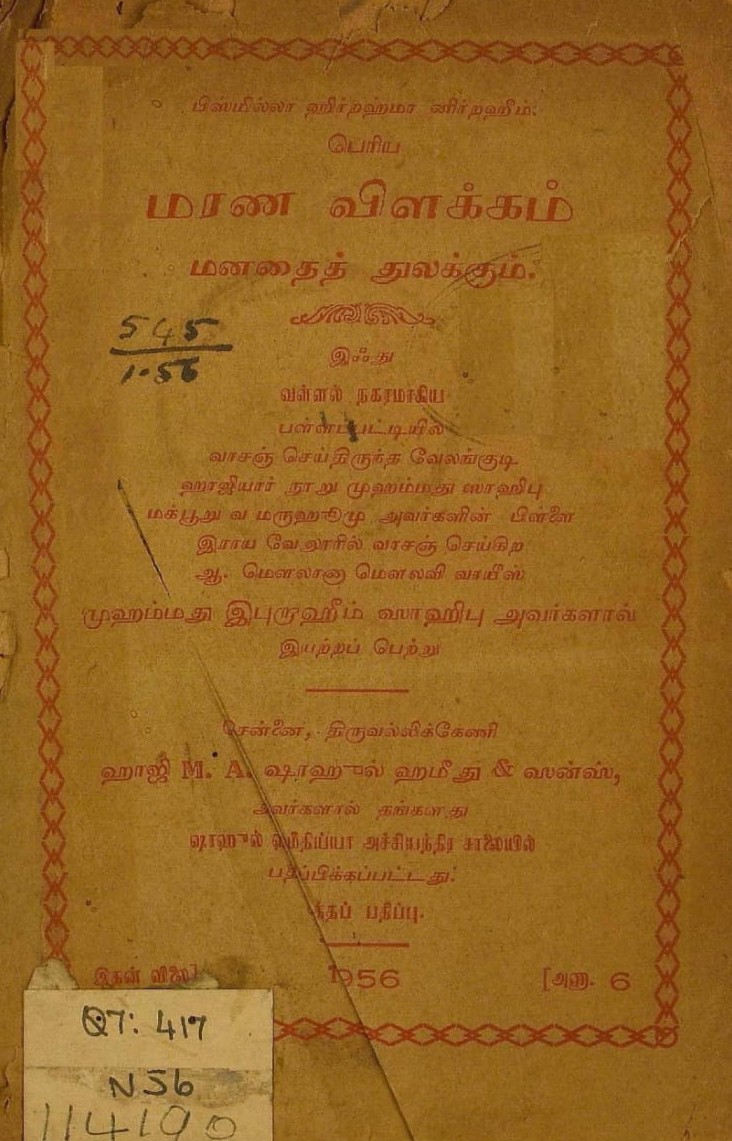 பிஸ்மில்லா ஹிர்றஹ்மா னிர்றஹீம்:
பெரிய
மரண விளக்கம்
மனதைத் துலக்கும்.
545
1.56
இஃது
வள்ளல் நகரமாகிய
பள்ளப்பட்டியில்
வாசஞ் செய்திருந்த வேலங்குடி
ஹாஜியார் நூறு முஹம்மது ஸாஹிபு
மக்பூறு வ மருஹூமு அவர்களின் பிள்ளை
இராய வேலூரில் வாசஞ் செய்கிற
ஆ. மௌலானா மௌலவி வாயீஸ்
முஹம்மது இபுறாஹீம் ஸாஹிபு அவர்களால்
இயற்றப் பெற்று
சென்னை, திருவல்லிக்கேணி
ஹாஜி M. A. ஷாஹுல் ஹமீது & ஸன்ஸ்,
அவர்களால் தங்களது
ஷாஹுல் ஹமீதிய்யா அச்சியந்திர சாலையில்
பதிப்பிக்கப்பட்டது.
பதிப்பு.
இதன் விலை] 1956 [அணா. 6
Q7: 417
N56
114190